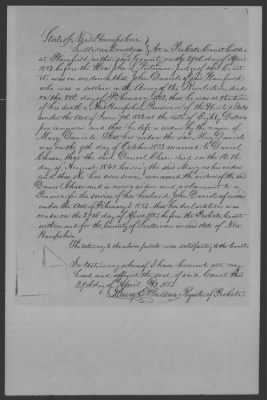 State of New Hampshire
Sullivan County ss At a Probate Court holden
at Plainfield within said County on the 29th day of April
1853 before the Hon. John L Putnam Judge of said Court
it was in evidence that John Daniels of Plainfield
who was a soldier in the Army of the Revolution died
on the 8th day of February 1833, that he was at the time
of his death a New Hampshire Pensioner of the United States
under the Act of June 7th 1832 at the rate of Eighty Dollars
per annum and that he left a widow by the name of
Mary Daniels. That his widow the said Mary Daniels
was on the 9th day of October 1833 married to Daniel
Chase, that the said Daniel Chase died on the
day of August 1841 leaving the said Mary as his widow
and that she has ever since remained the widow of the said
Daniel Chase and is now a widow and a claimant to a
Pension for the service of her husband John Daniels aforesaid
under the Act of February 3 1853. that her declaration was
made on the 29th day of April 1853 before the Probate Court
within and for the County of Sullivan in said State of New
Hampshire
The testimony to the above facts was satisfactory to the Court.
In testimony whereof I have hereunto set my
hand and affixed the seal of said Court this
29th day of April AD 1853
Henry E Baldwin Register of Probate